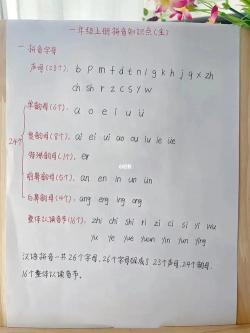 一年级上册拼音知识点(全)
一、拼音字母
声母(23个): b p m f d t n l g k h j q x zh
ch sh r z c s y w
24个
单韵母(6个): a o e i u ü
复韵母(8个): ai ei ui ao ou iu ie üe
特殊韵母(1个): er
前鼻韵母(5个): an en in un ün
后鼻韵母(4个): ang eng ing ong
整体认读音节(16个): zhi chi shi ri zi ci si yi wu
yu ye yue yuan yin yun ying
汉语拼音一共26个字母,26个字母组成了23个声母,24个韵母,
16个整体认读音节。